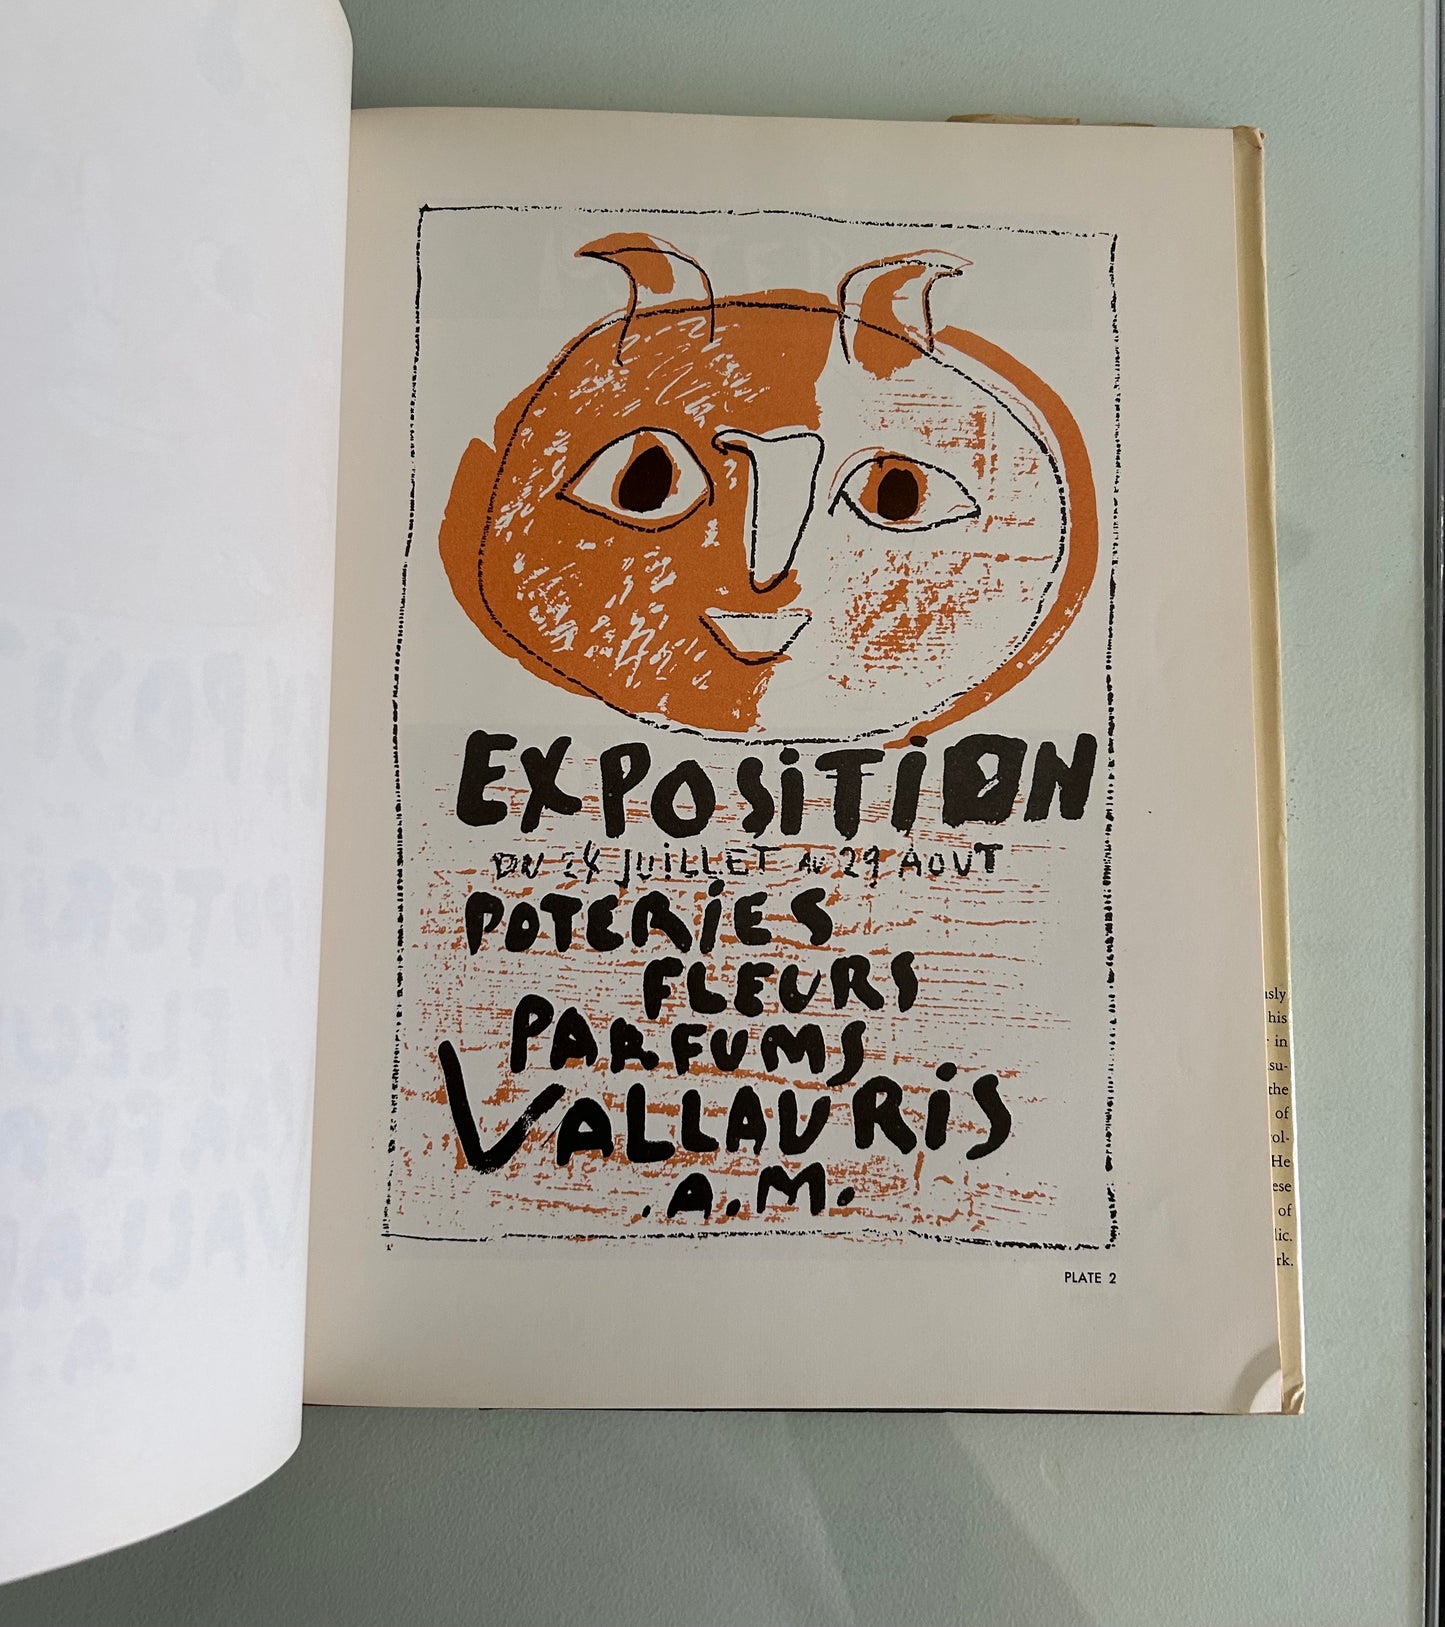 EXPOSITION
DU 24 JUILLET AU 29 AOUT
POTERIES
FLEURS
PARFUMS
VALLAURIS
.A.M.
PLATE 2
his
in
su-
the
of
He
ese
of
lic.
rk.